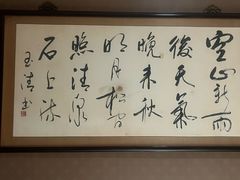 空山新雨
後天氣
晚来秋
明月松间
照清泉
石上流
玉清書